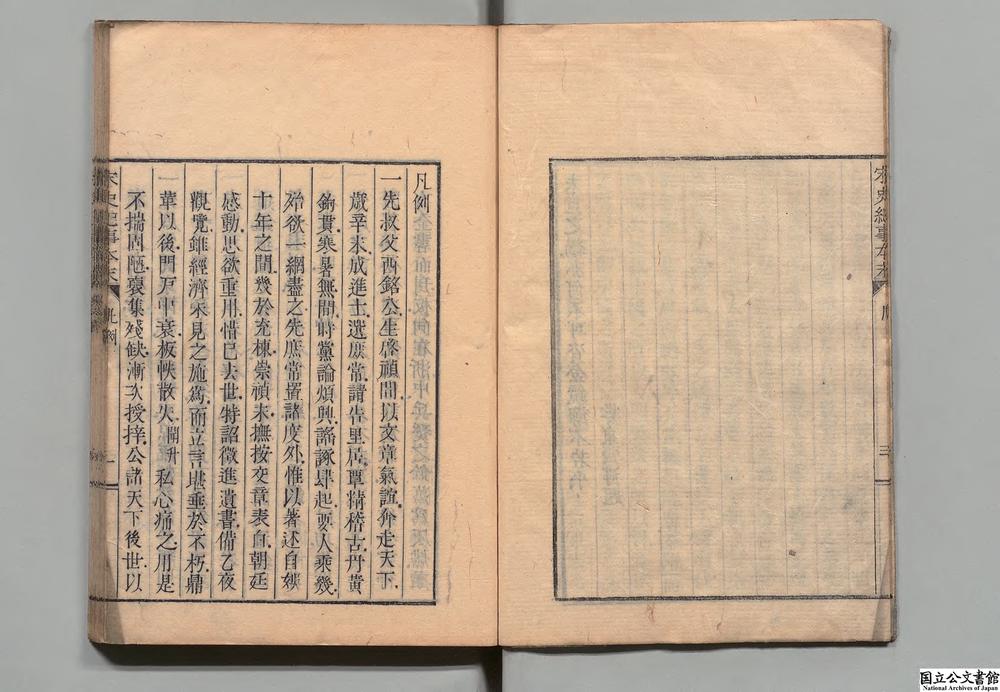 宋史紀事本末
序
三
凡例
一先叔父西銘公生啓禎間以文章氣誼奔走天下
歲辛未成進士選庶常請告里居覃精稽古丹黃
鉤貫寒暑無間時黨論煩興謠諑肆起要人乘幾
殆欲一網盡之先庶常置諸度外惟以著述自娛
十年之間幾於充棟崇禎末撫按交章表白朝廷
感動思欲重用惜已去世特詔徵進遺書備乙夜
觀覽雖經濟未見之施爲而立言堪垂於不朽鼎
革以後門戸中衰板帙散失 閈升 私心痛之用是
不揣固陋裒集殘缺漸次授梓公諸天下後世以
宋史紀事本末
凡例
一
国立公文書館
National Archives of Japan